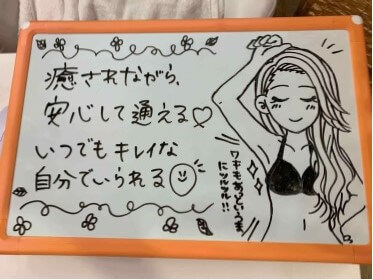 癒されながら、
安心して通える♡
いつでもキレイな
自分でいられる
ワキもあっというま
にツルツル!!